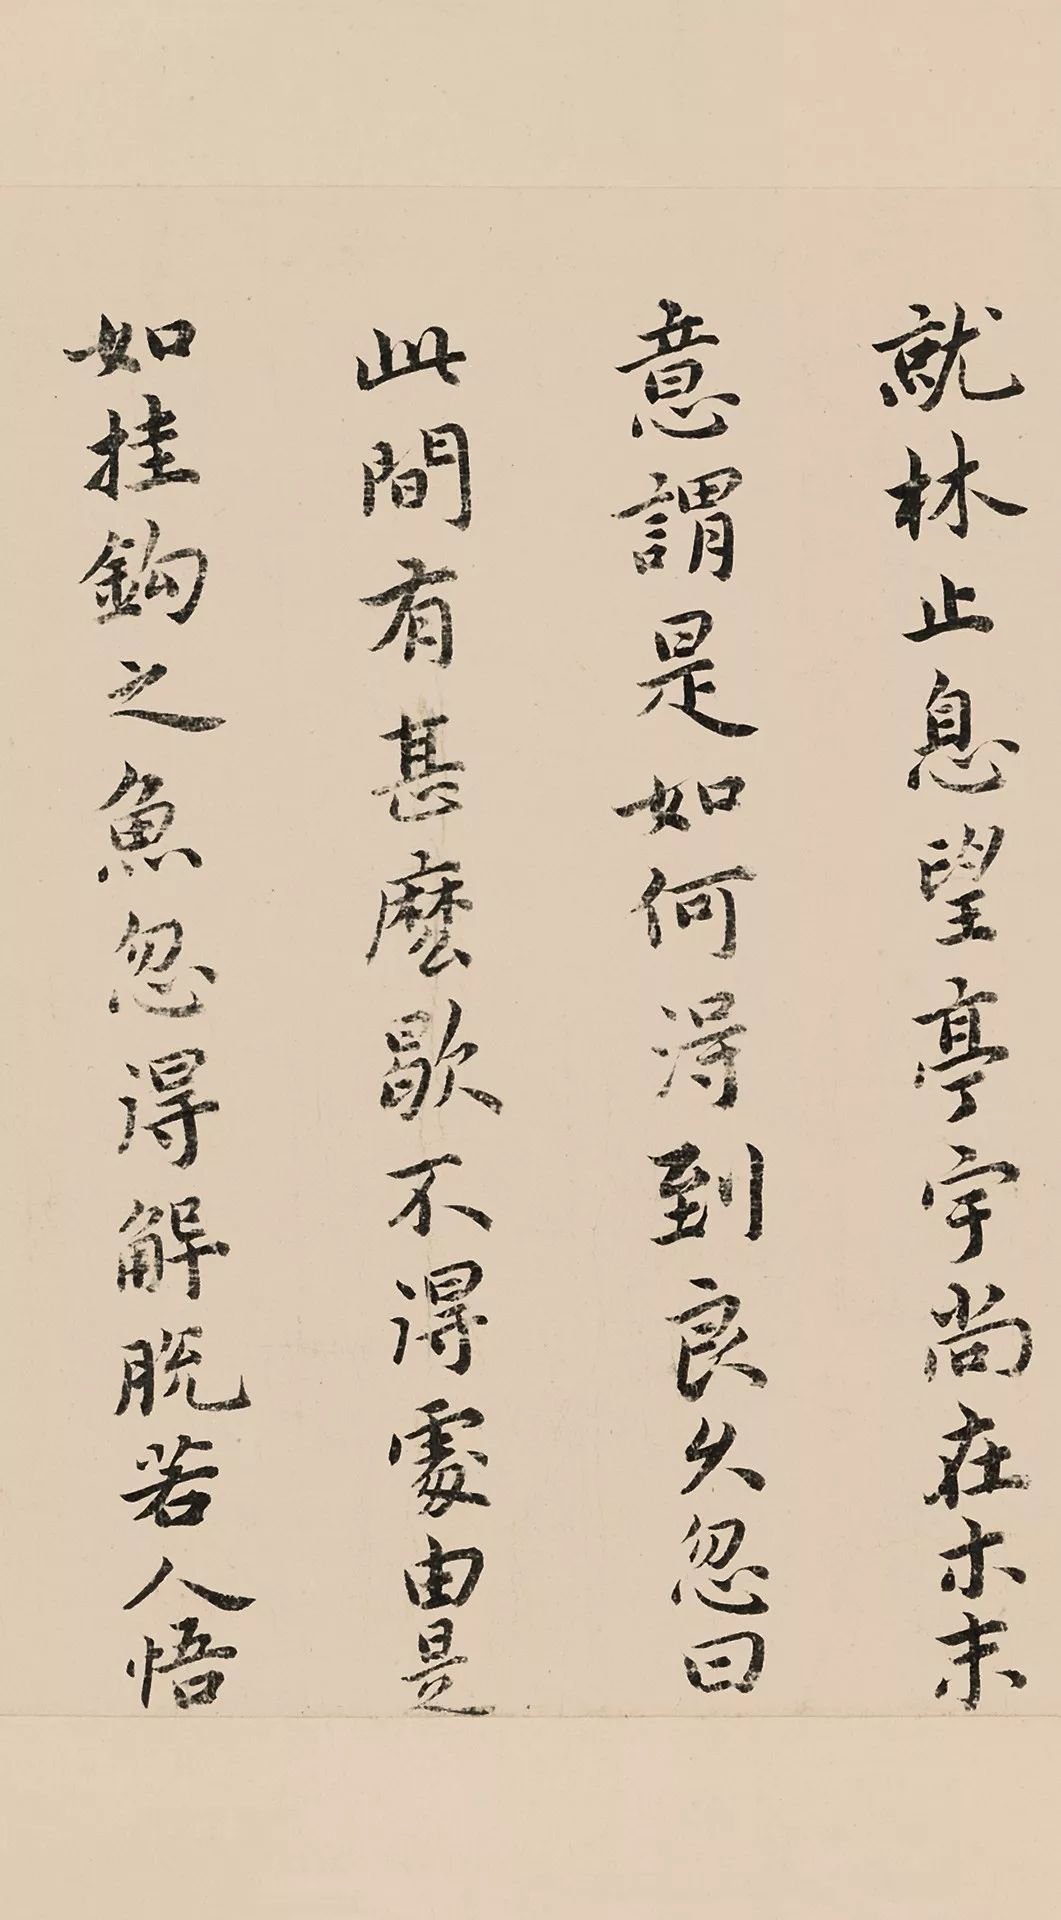 就林止息望亭宇尚在木末
意謂是如何得到良久忽曰
此間有甚麽歇不得處由是
如挂鈎之魚忽得解脫若人悟